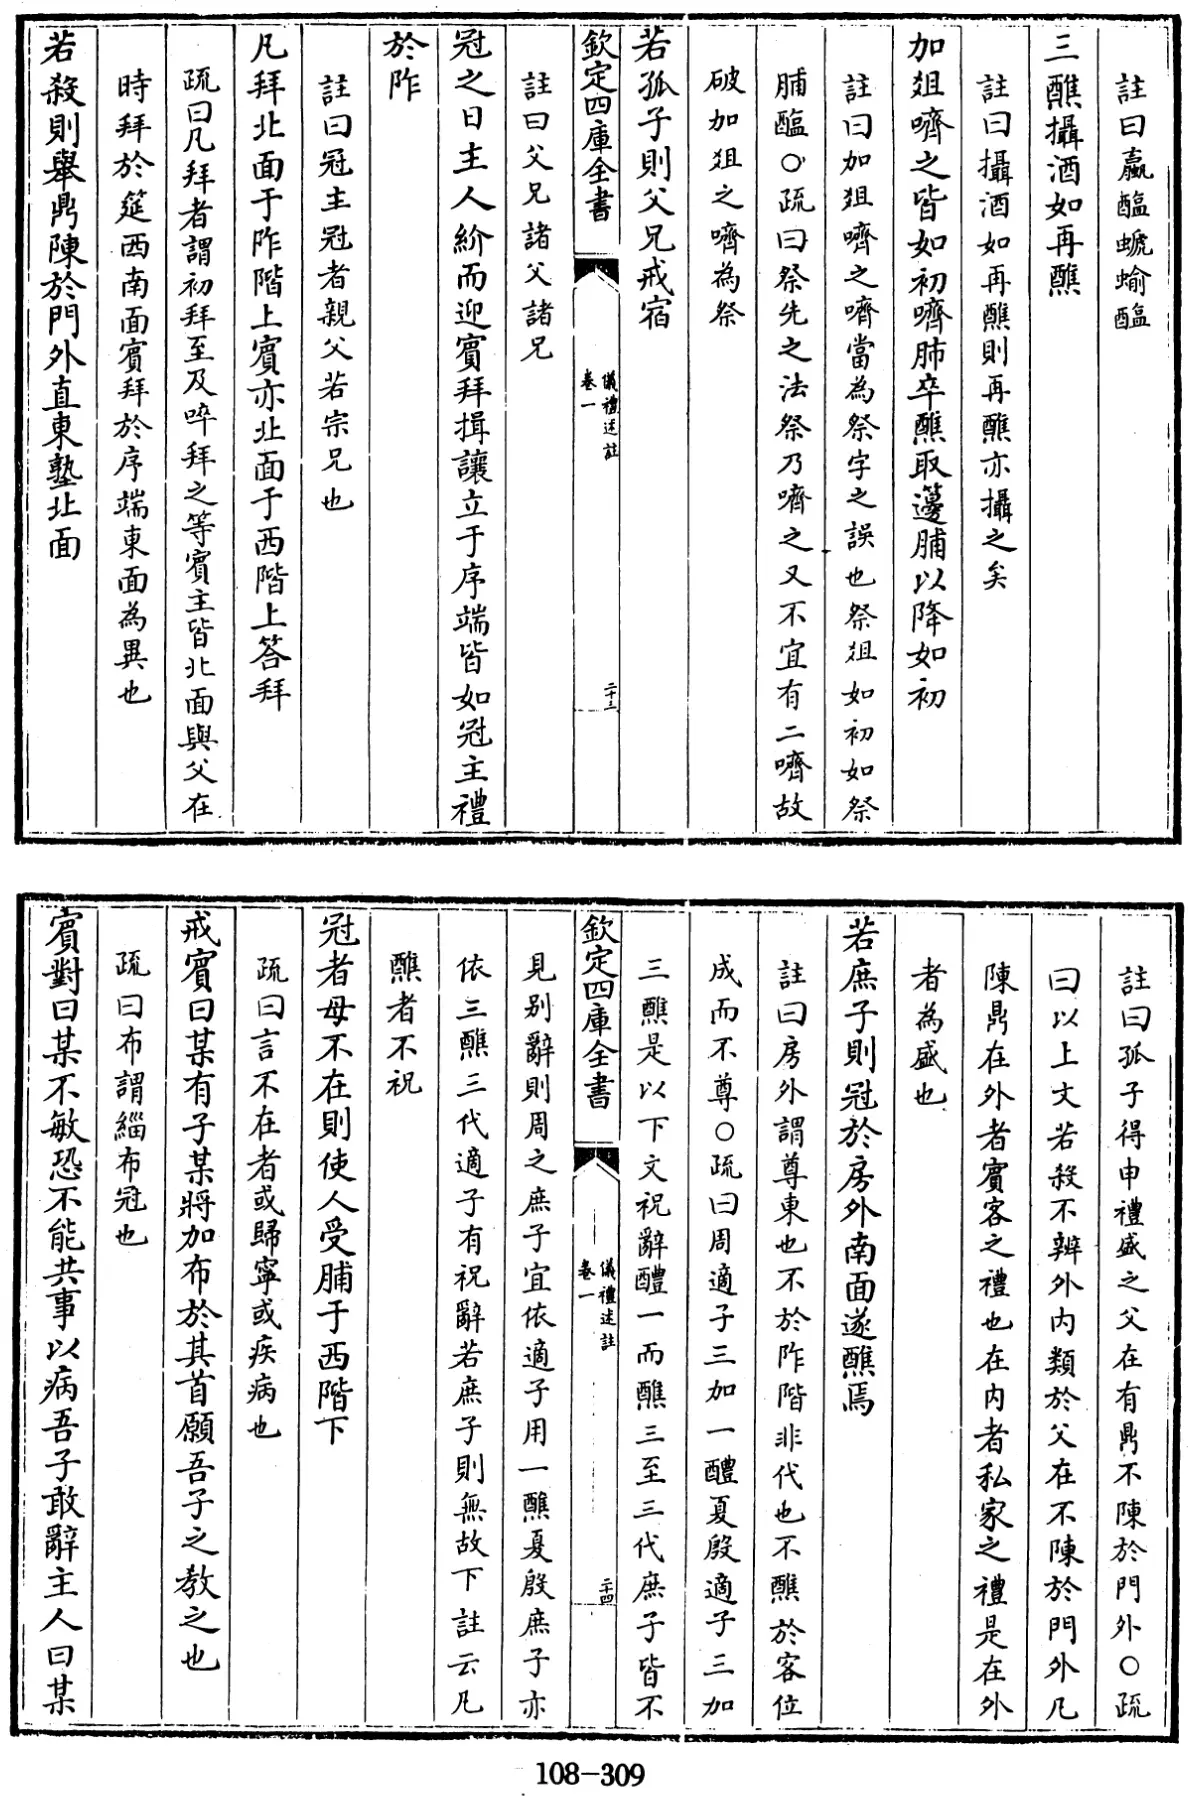 註曰蠃醢蠯蝓醢
三醮攝酒如再醮
註曰攝酒如再醮則再醮亦攝之矣
加俎嚌之皆如初嚌肺卒醮取籩脯以降如初
註曰加俎嚌之嚌當為祭字之誤也祭俎如初如祭
脯醢○疏曰祭先之法祭乃嚌之又不宜有二嚌故
破加俎之嚌為祭
若孤子則父兄戒宿
欽定四庫全書
儀禮述註
卷一
二十三
註曰父兄諸父諸兄
冠之日主人紒而迎賓拜揖讓立于序端皆如冠主禮
於阼
註曰冠主冠者親父若宗兄也
凡拜北面于阼階上賓亦北面于西階上答拜
疏曰凡拜者謂初拜至及啐拜之等賓主皆北面與父在
時拜於筵西南面賓拜於序端東面為異也
若殺則舉鼎陳於門外直東塾北面
註曰孤子得申禮盛之父在有鼎不陳於門外○疏
曰以上文若殺不辨外内類於父在不陳於門外凡
陳鼎在外者賓客之禮也在内者私家之禮是在外
者為盛也
若庶子則冠於房外南面遂醮焉
註曰房外謂尊東也不於阼階非代也不醮於客位
成而不尊○疏曰周適子三加一醴夏殷適子三加
三醮是以下文祝辭醴一而醮三至三代庶子皆不
欽定四庫全書
儀禮述註
卷一
二十四
見别辭則周之庶子宜依適子用一醮夏殷庶子亦
依三醮三代適子有祝辭若庶子則無故下註云凡
醮者不祝
冠者母不在則使人受脯于西階下
疏曰言不在者或歸寧或疾病也
戒賓曰某有子某將加布於其首願吾子之教之也
疏曰布謂緇布冠也
賓對曰某不敏恐不能共事以病吾子敢辭主人曰某
108-309